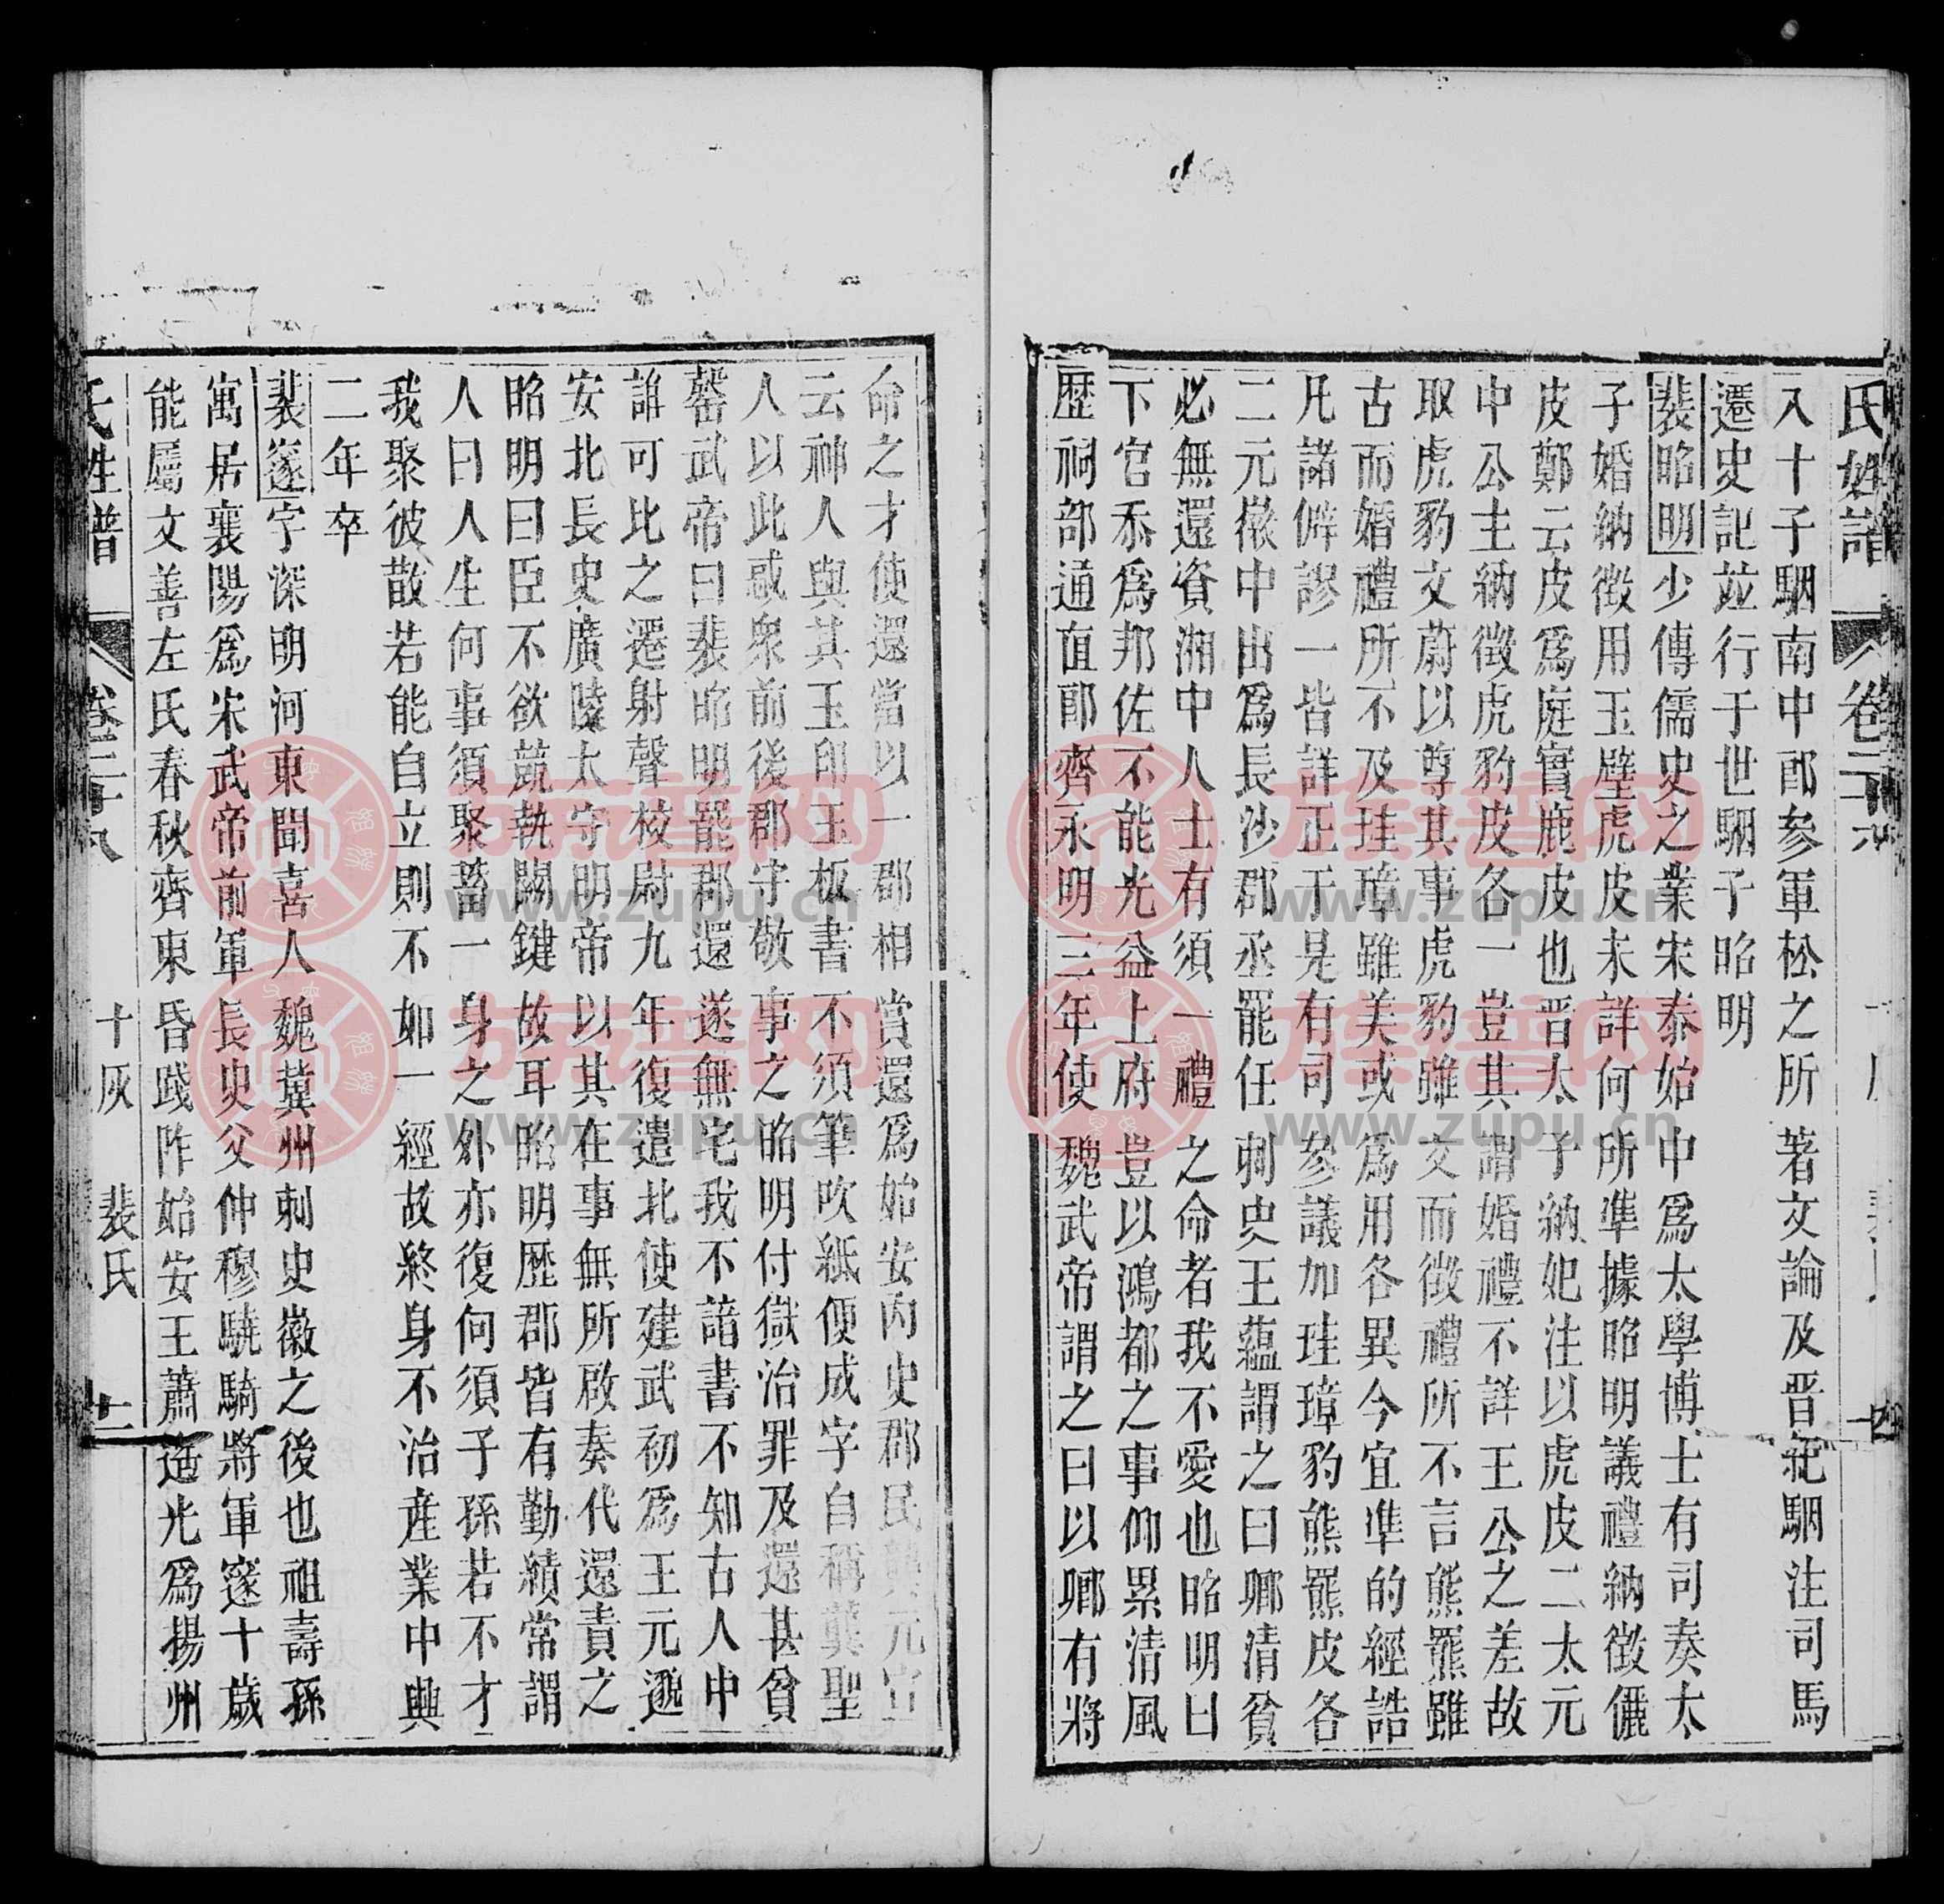 氏姓譜 卷二十六
入十子駰南中郎參軍松之所著文論及晋紀駰注司馬
遷史記竝行于世駰子昭明
裴昭明少傳儒史之業宋泰始中爲太學博士有司奏太
子婚納徵用玉璧虎皮未詳何所準據昭明議禮納徵儷
皮鄭云皮爲庭實鹿皮也晋太子納妃注以虎皮二太元
中公主納徵虎豹皮各一豈其謂婚禮不詳王公之差故
取虎豹文蔚以尊其事虎豹雖文而徵禮所不言熊羆雖
古而婚禮所不及珪璋雖美或爲用各異今宜準的經誥
凡諸僻謬一皆詳正于是有司參議加珪璋豹熊羆皮各
二元徽中出爲長沙郡丞罷任刺史王蘊謂之曰卿清貧
必無還資湘中人士有須一禮之命者我不愛也昭明曰
下官忝爲邦佐不能光益上府豈以鴻都之事仰累清風
歷祠部通直郎齊永明三年使魏武帝謂之曰以卿有將
命之才使還當以一郡相賞還爲始安內史郡民龔元宣
云神人與其玉印玉板書不須筆吹紙便成字自稱龔聖
人以此惑衆前後郡守敬事之昭明付獄治罪及還甚貧
罄武帝曰裴昭明罷郡還遂無宅我不諳書不知古人中
誰可比之遷射聲校尉九年復遣北使建武初爲王元邈
安北長史廣陵太守明帝以其在事無所啟奏代還責之
昭明曰臣不欲競執關鍵故耳昭明歷郡皆有勤績常謂
人曰人生何事須聚蓄一身之外亦復何須子孫若不才
我聚彼散若能自立則不如一經故終身不治產業中興
二年卒
裴邃字深明河東聞喜人魏冀州刺史徽之後也祖壽孫
寓居襄陽爲宋武帝前軍長史父仲穆驍騎將軍邃十歲
能屬文善左氏春秋齊東昏踐阼始安王蕭遙光爲揚州
氏姓譜 卷二十六 十灰 裴氏